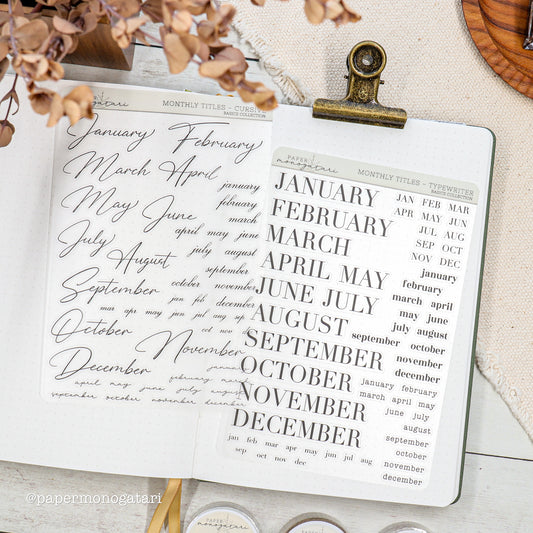 monogatari
MONTHLY TITLES - CURSIVE
BASICS COLLECTION
January February
March April
May June
July August
September
October November
December
january
february
march
april may june
july august
september
october november
jan feb december
mar apr may jun jul aug sep
oct nov
february march
april may june july august
september october november december
PAPER
monogatari
MONTHLY TITLES - TYPEWRITER
BASICS COLLECTION
JANUARY
FEBRUARY
MARCH
APRIL MAY
JUNE JULY
AUGUST
SEPTEMBER
OCTOBER
NOVEMBER
DECEMBER
JAN FEB MAR
APR MAY JUN
JUL AUG
SEP OCT
NOV DEC
january
february
march april
may june
july august
september october
november
december
january february
march april may
june july
august
september
october
november
december
jan feb mar apr may jun jul aug
sep oct nov dec
@papermonogatari
PAPER
monogatari